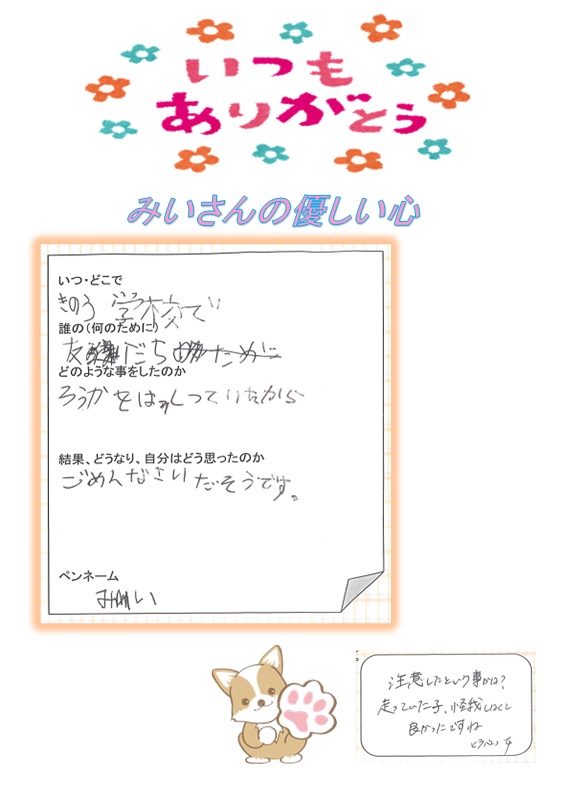 いつも
ありがとう
みいさんの優しい心
いつ・どこで
きのう 学校で
誰の(何のために)
友だち
どのような事をしたのか
ろうかをはしっていたから
結果、どうなり、自分はどう思ったのか
ごめんなさいだそうです。
ペンネーム
みい
注意したという事かな?
走っていた子、怪我しなくて
良かったですね